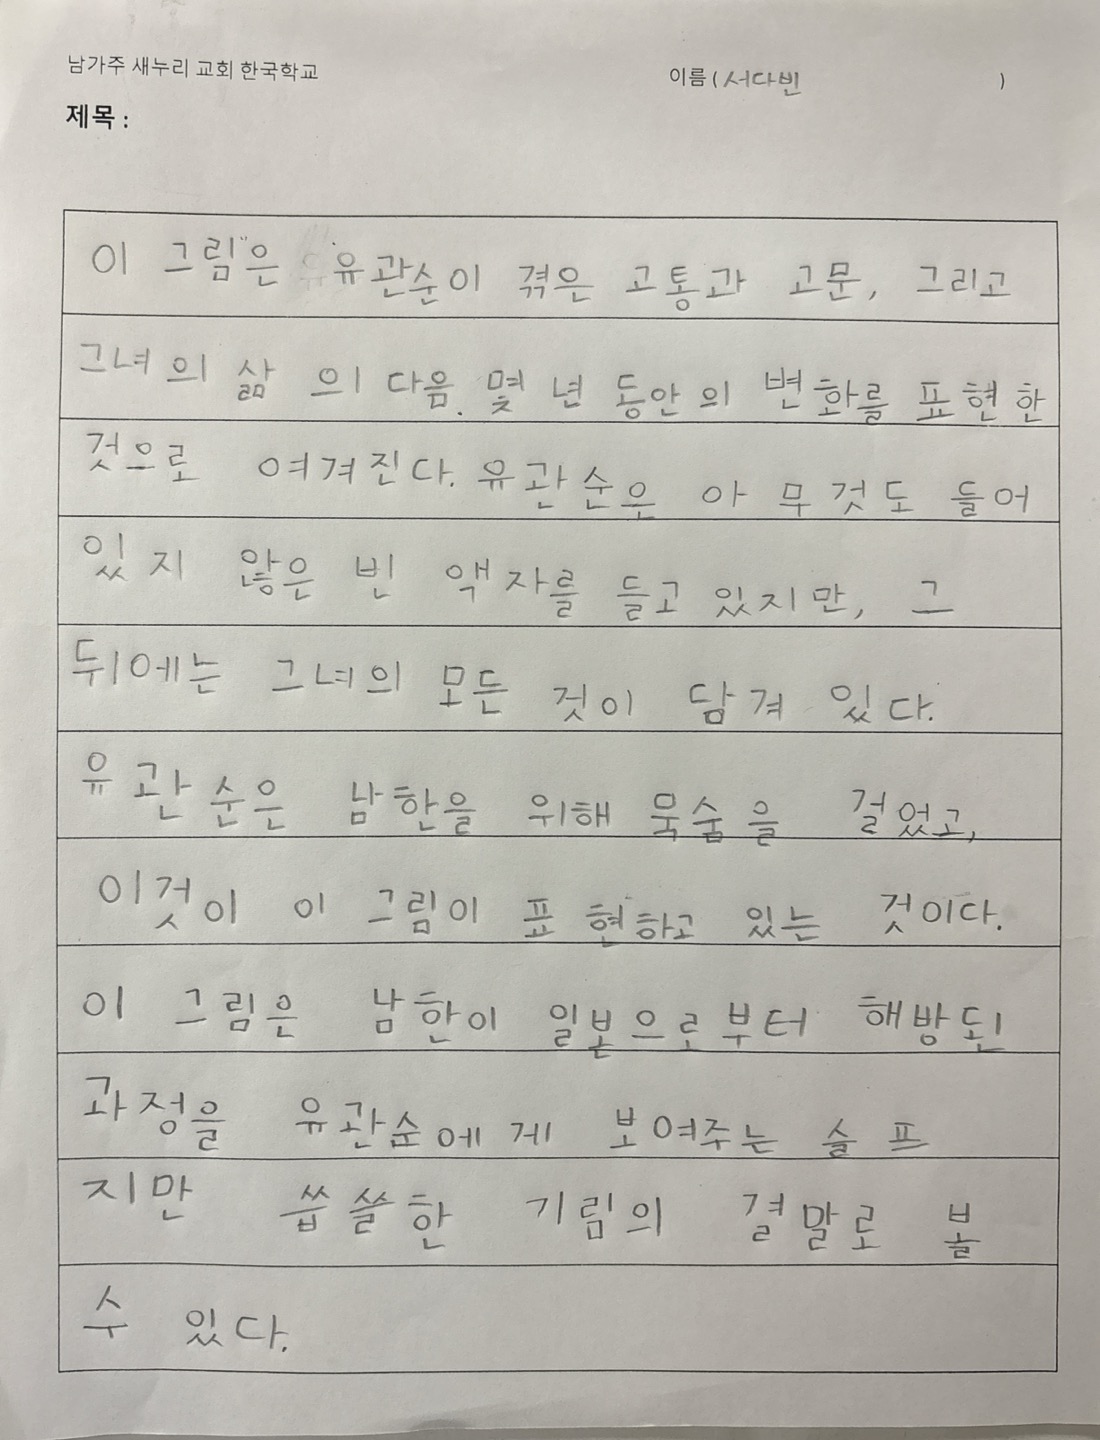 남가주 새누리 교회 한국학교 이름 ( 서다빈 )
제목 :
이 그림은 유관순이 겪은 고통과 고문, 그리고
그녀의 삶 의 다음. 몇 년 동안의 변화를 표현한
것으로 여겨진다. 유관순은 아 무것도 들어
있지 않은 빈 액자를 들고 있지만, 그
뒤에는 그녀의 모든 것이 담겨 있다.
유관순은 남한을 위해 묵숨을 걸었고,
이것이 이 그림이 표현하고 있는 것이다.
이 그림은 남한이 일본으로부터 해방된
과정을 유관순에게 보여주는 슬프
지만 씁쓸한 기림의 결말로 볼
수 있다.